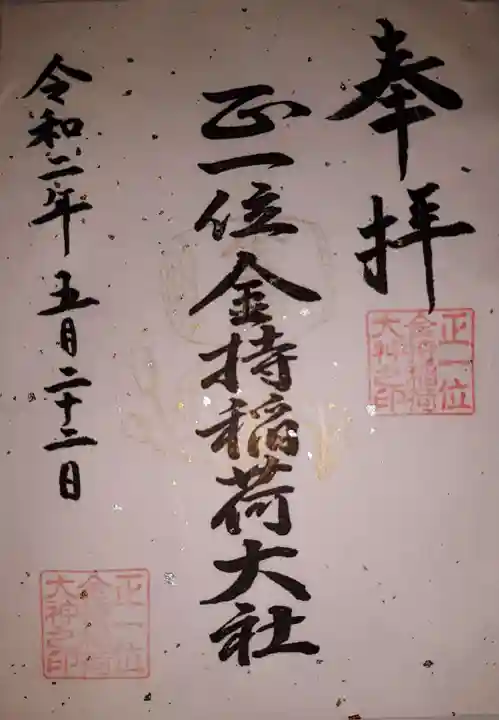 奉拝
正一位
金持稲荷
大神之印
正一位金持稲荷大社
令和二年五月二十二日
正一位
金持稲荷
大神之印